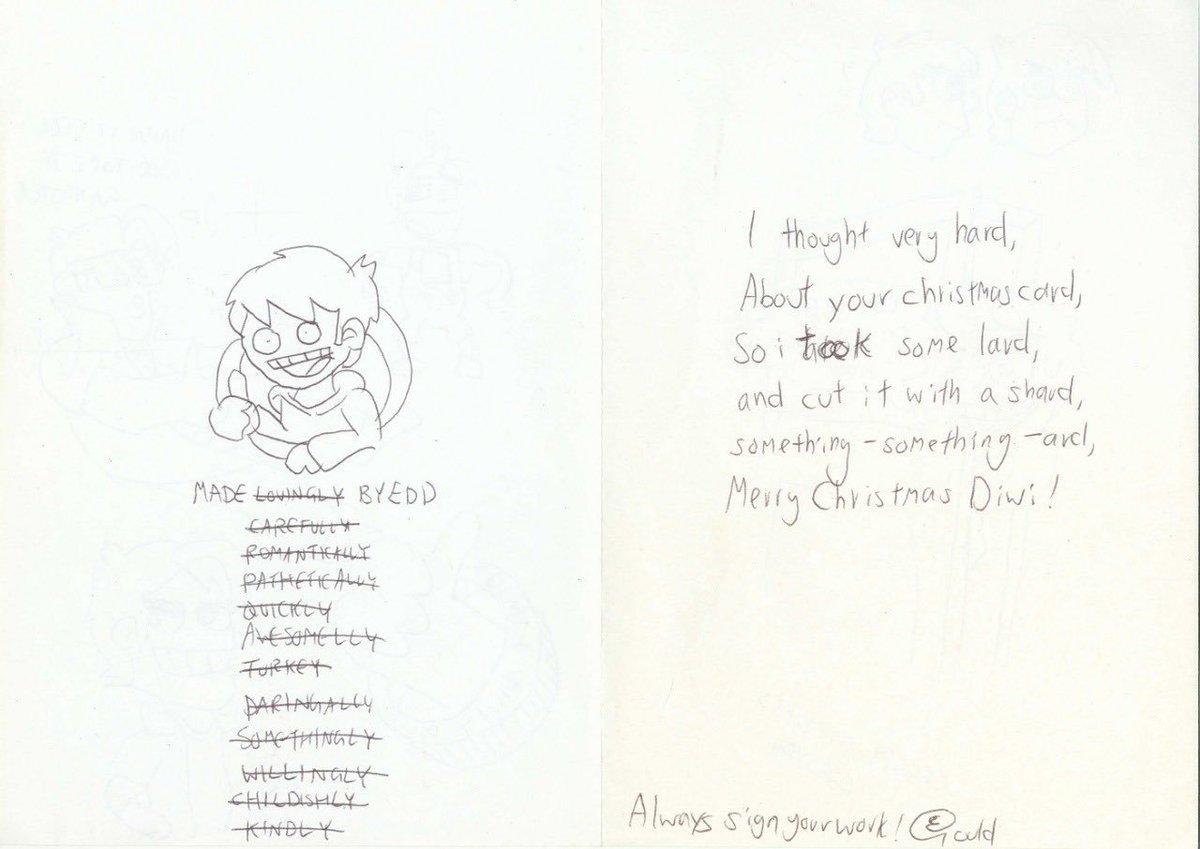 MADE LOVINGLY BY EDD
CAREFULLY
ROMANTICALLY
PATHETICALLY
QUICKLY
AWESOMELLY
TURKEY
DARINGALLY
SOMETHINGLY
WILLINGLY
CHILDISHLY
KINDLY
I thought very hard,
About your christmas card,
So i took some lard,
and cut it with a shard,
something-something-ard,
Merry Christmas Diwi!
Always sign your work! EGould